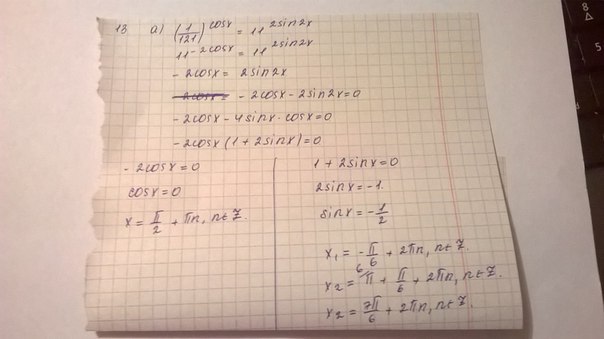 13 а) (1/121)^cosx = 11^2sin2x
11^-2cosx = 11^2sin2x
-2cosx = 2sin2x
-2cosx - 2sin2x=0
-2cosx - 4sinx·cosx=0
-2cosx(1+2sinx)=0
-2cosx=0
cosx=0
x = π/2 + πn, n∈Z.
1+2sinx=0
2sinx=-1.
sinx=-1/2
x₁ = -π/6 + 2πn, n∈Z.
x₂ = π + π/6 + 2πn, n∈Z.
x₂ = 7π/6 + 2πn, n∈Z.